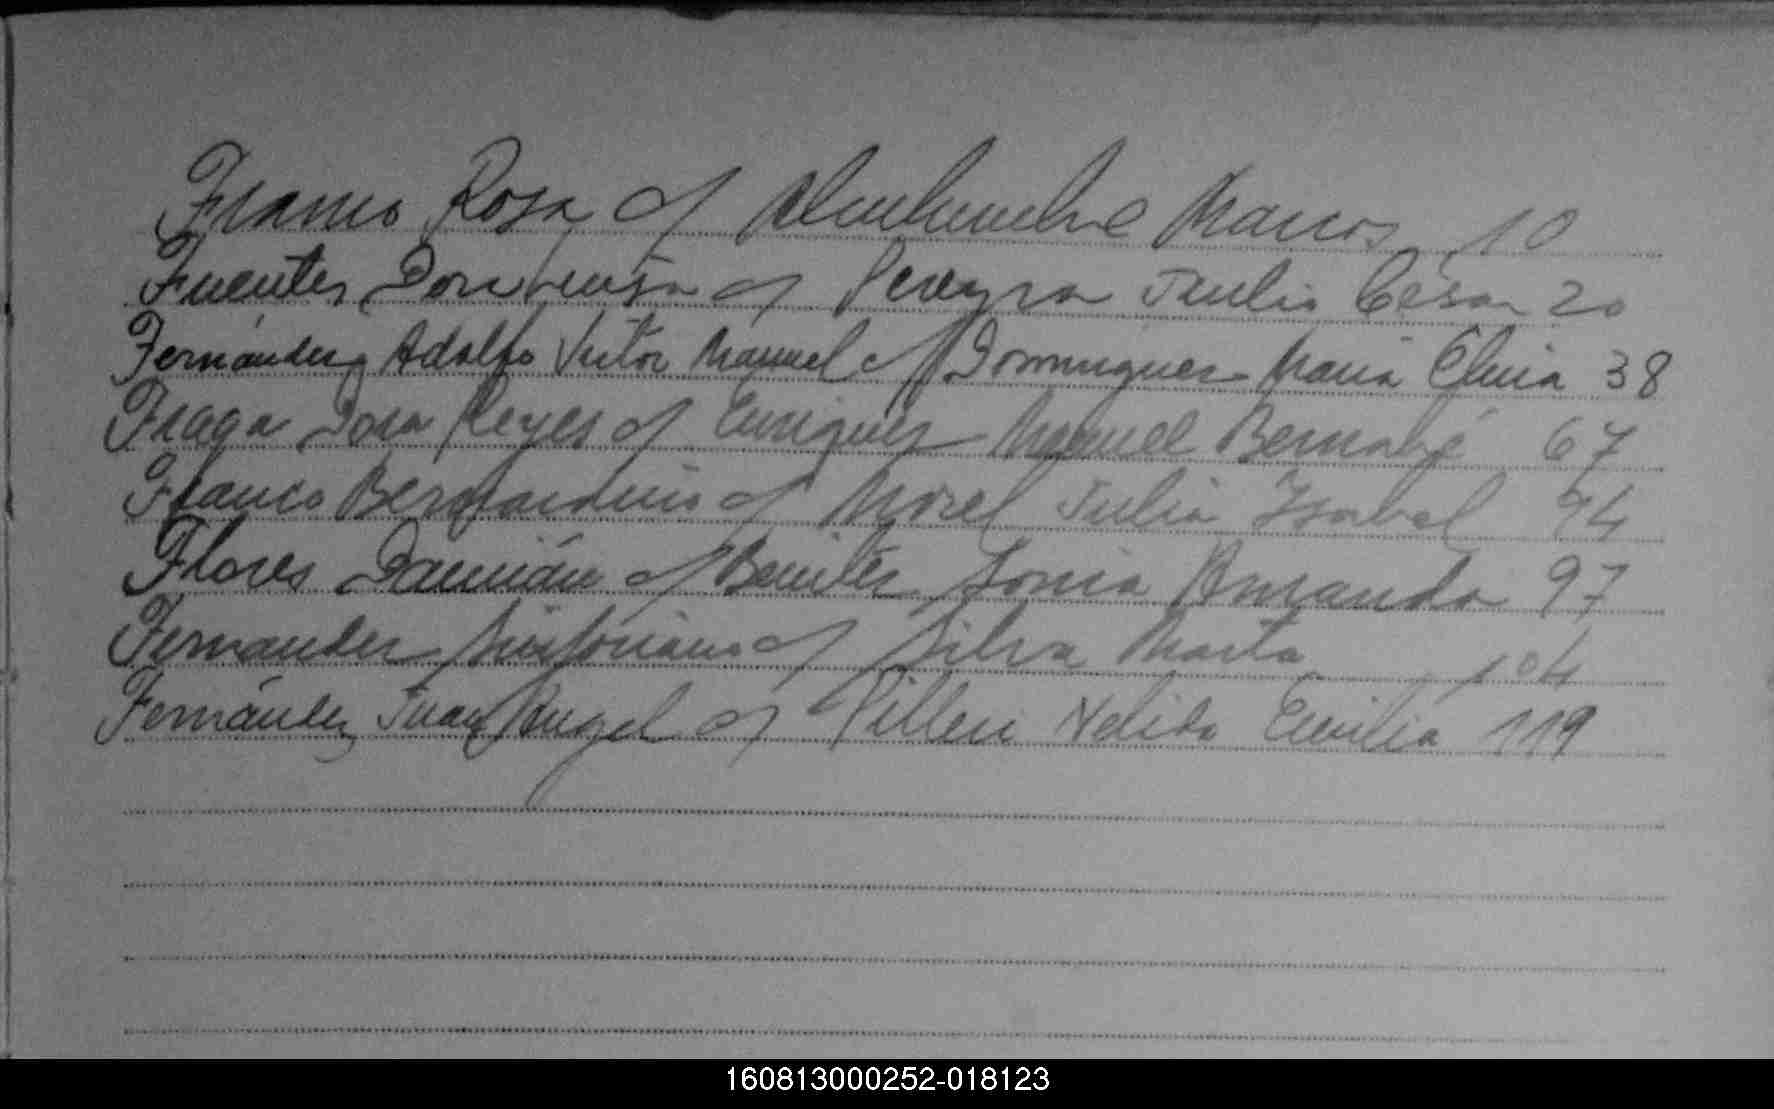 Franco Rosa c/ Marcos 10
Fuentes c/ Pereyra Julio César 20
Fernández Adolfo Victor Manuel c/ Dominguez Maria Elvia 38
Fraga Dora Reyes c/ Enriquez Manuel Bernabé 67
Franco Bernardino c/ Morel Julia Isabel 94
Flores Damián c/ Benítez Sonia Amanda 97
Fernandez Sinforiano c/ Silva Marta 104
Fernández Juan Angel c/ Pilleri Nelida Emilia 119
160813000252-018123